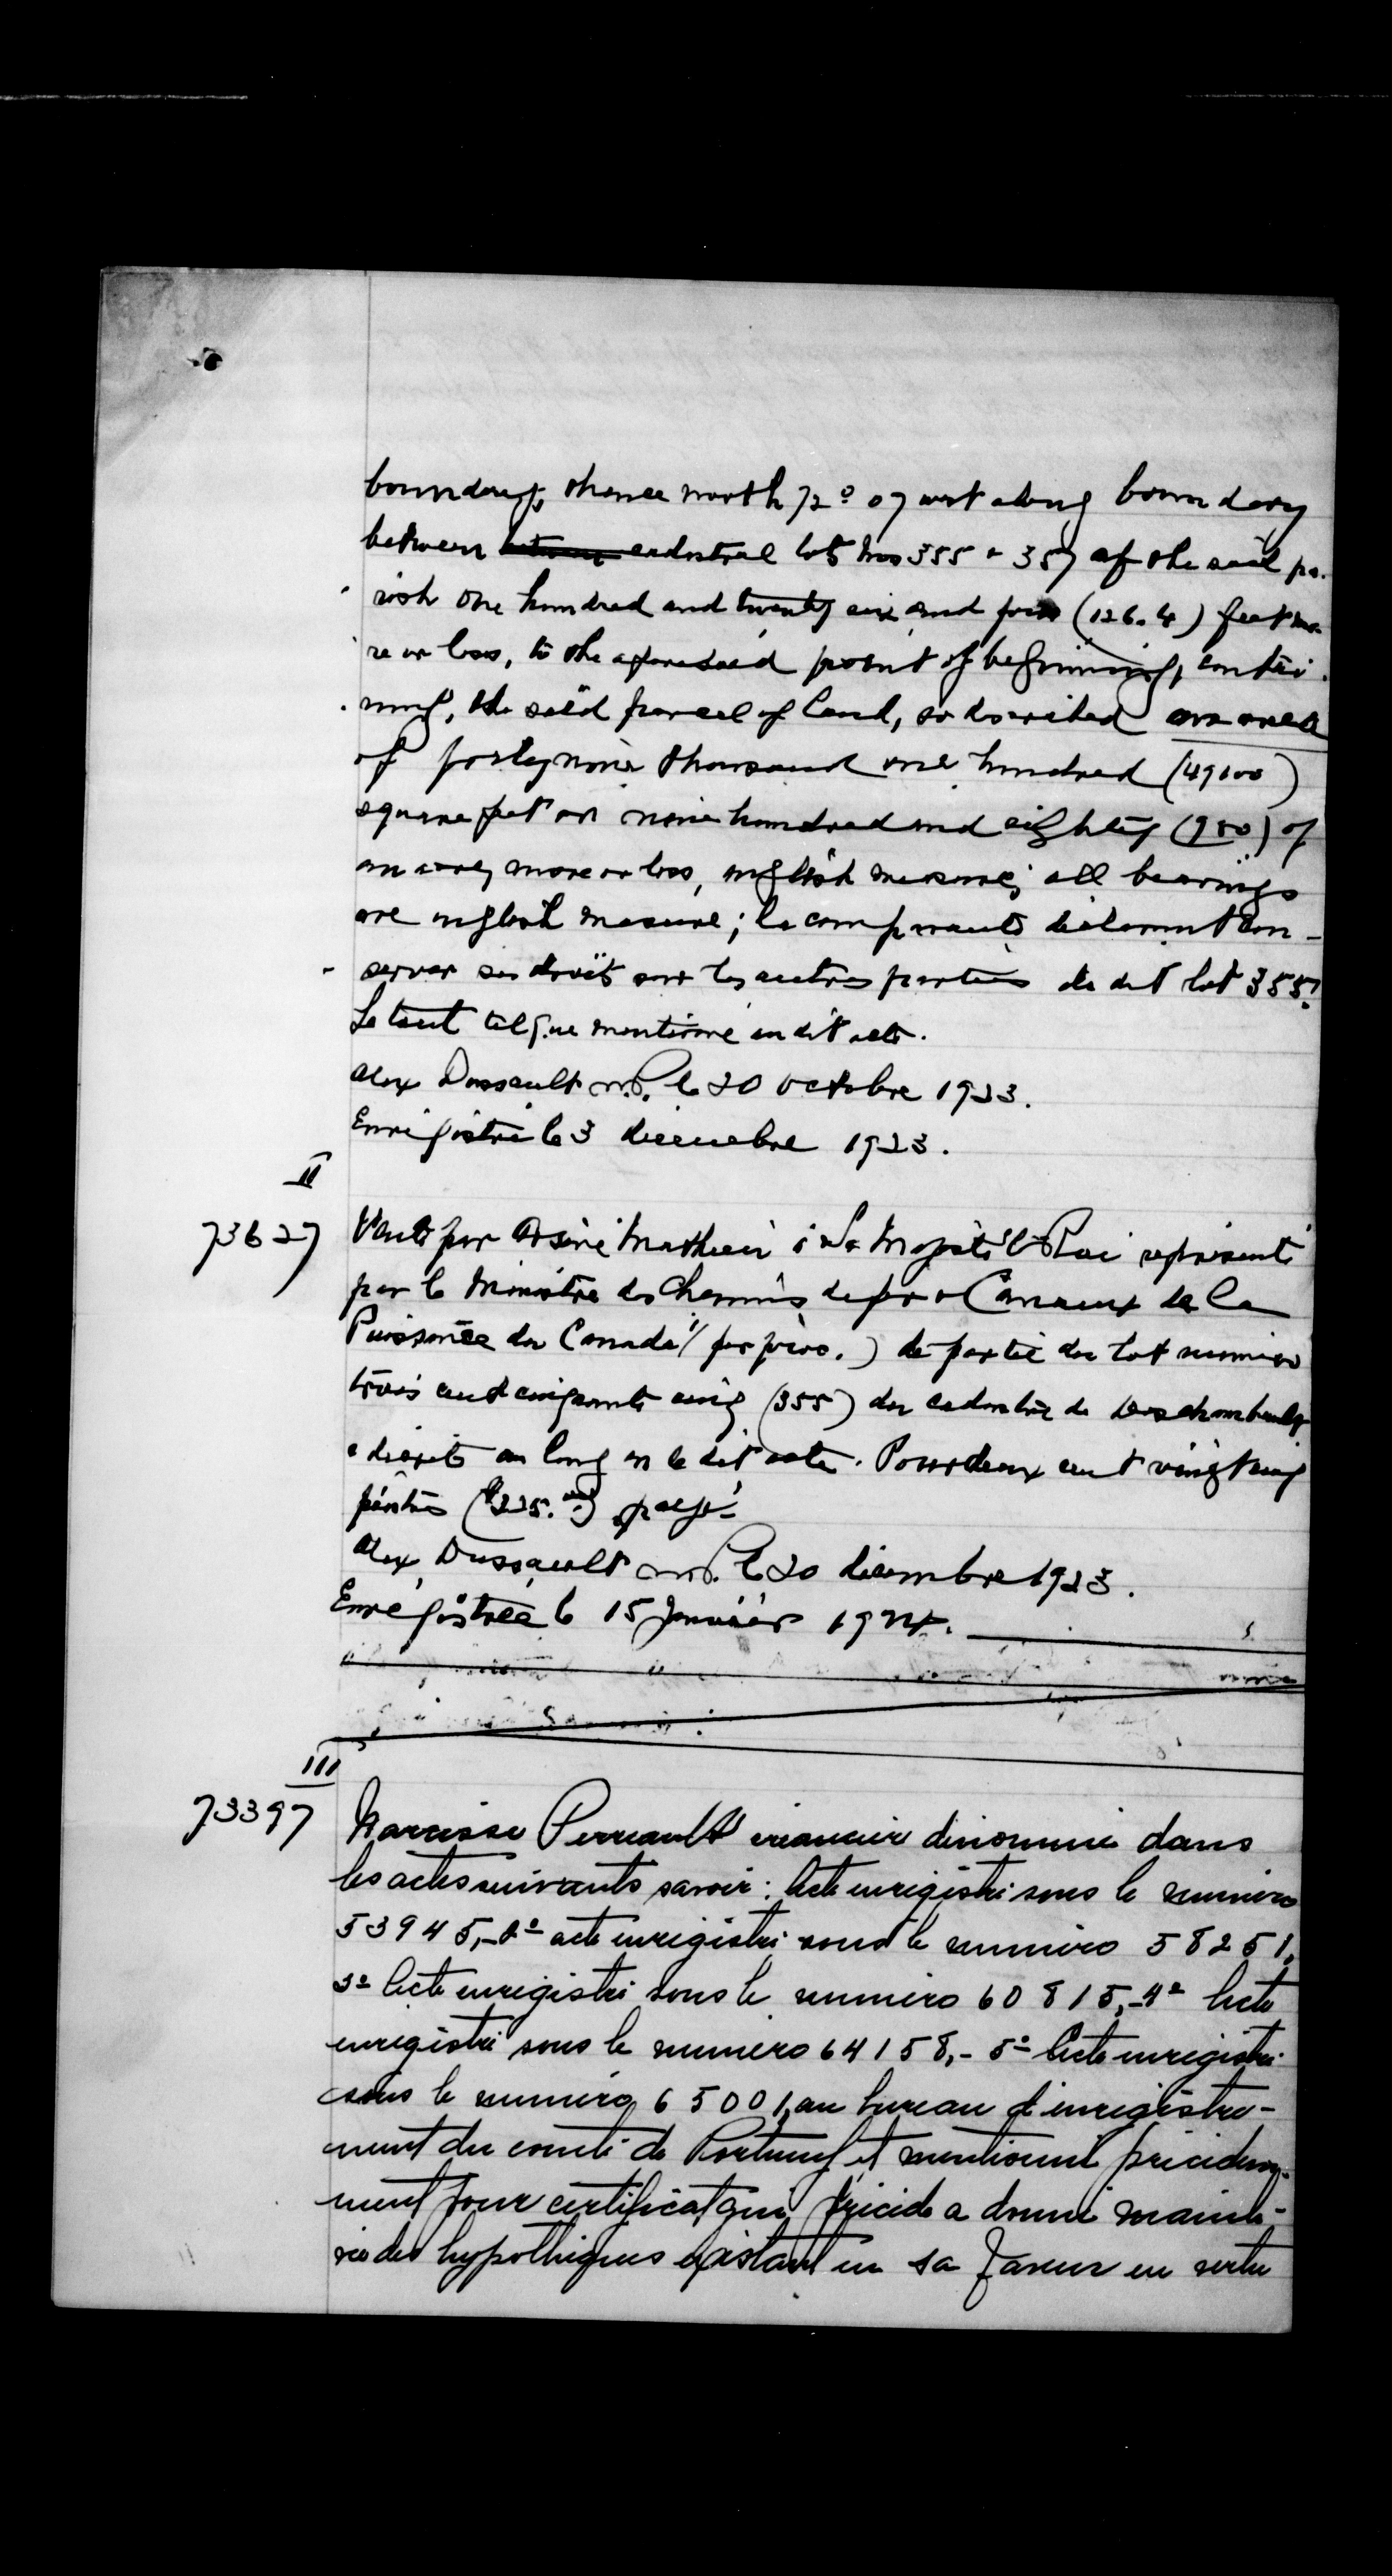 boundary, thence north 72° 07 west along boundary
between between cadastral lots nos 355 & 357 of the said pa-
rish one hundred and twenty six and four (126.4) feet mo-
re or less, to the aforesaid point of beginning, contai-
ning, the said parcel of land, so described an area
of forty nine thousand one hundred (49100)
square feet or nine hundred and eighty (980) of
an acre, more or less, english measure; all bearings
are english measure; le comparants déclarent con-
server ses droits sur les autres parties du dit lot 355.
Le tout tel que mentionné au dit acte.
Alex Dussault n.p. le 20 octobre 1923.
Enregistré le 3 décembre 1923.
II
73627 Vente par Mathieu à Sa Majesté le Roi représenté
par le Ministre des Chemins de fer & Canaux de la
Puissance du Canada (par proc.) de partie du lot numéro
trois cent cinquante cinq (355) du cadastre de Deschambault
décrite au long en le dit acte. Pour deux cent vingt cinq
piastres ($225.00) payé
Alex Dussault n.p. le 20 décembre 1923.
Enrégistrée le 15 Janvier 1924.
III
73397 Narcisse Perreault créancier dénommé dans
les actes suivants savoir: Acte enregistré sous le numéro
53945,-2° acte enregistré sous le numéro 58251,
3° Acte enregistré sous le numéro 60815,-4° Acte
enregistré sous le numéro 64158,- 5° Acte enregistré
sous le numéro 65001, au bureau d'enregistre-
ment du comté de Portneuf et mentionné précédem-
ment pour certificat qui précède a donné mainle-
vée des hypothèques existant en sa faveur en vertu